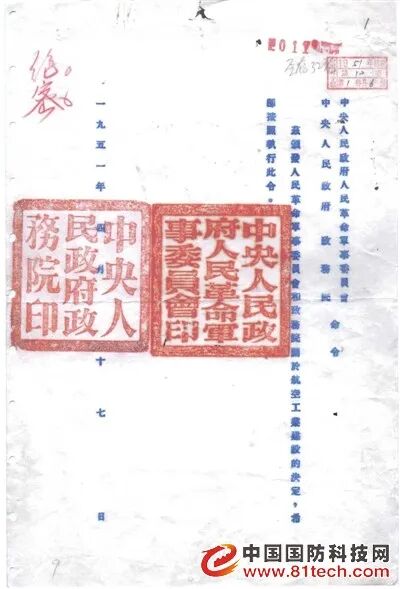 1
绝密
中央人民政府人民革命軍事委員會
中央人民政府政務院
命令
茲頒發人民革命軍事委員會和政務院關於航空工業建設的決定，希
即按照執行此令。
中央人民政
府人民革命軍
事委員會印
中央人
民政府政
務院印
一九五一年四月十七日
9
中国国防科技网
www.81tech.com